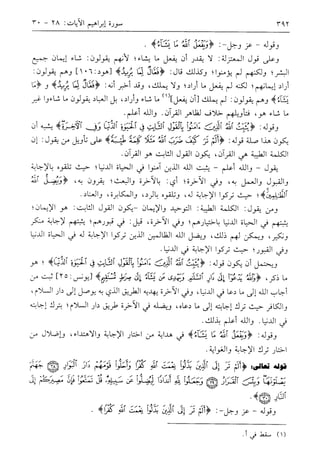 ٣٩٢ سورة إبراهيم الآيات: ٢٨ - ٣٠
وقوله - عز وجل-: ﴿وَيَفْعَلُ اللَّهُ مَا يَشَاءُ﴾ .
وعلى قول المعتزلة: لا يقدر أن يفعل ما يشاء؛ لأنهم يقولون: شاء إيمان جميع
البشر؛ ولكنهم لم يؤمنوا؛ وكذلك قال: ﴿فَعَّالٌ لِمَا يُرِيدُ﴾ [هود: ١٠٦] وهم يقولون:
أراد إيمانهم؛ لكنه لم يفعل ما أراد؛ ولا يملك، وقد أخبر أنه: ﴿فَعَّالٌ لِمَا يُرِيدُ﴾ و ﴿مَا
يَشَاءُ﴾ وهم يقولون: لم يملك [أن يفعل](١) ما شاء وأراد، بل العباد يقولون ما شاءوا غير
ما شاء هو، فتأويلهم خلاف لظاهر القرآن. والله أعلم.
وقوله: ﴿يُثَبِّتُ اللَّهُ الَّذِينَ آمَنُوا بِالْقَوْلِ الثَّابِتِ فِي الْحَيَاةِ الدُّنْيَا وَفِي الْآخِرَةِ﴾ يشبه أن
يكون هذا صلة قوله: ﴿أَلَمْ تَرَ كَيْفَ ضَرَبَ اللَّهُ مَثَلًا كَلِمَةً طَيِّبَةً﴾ على تأويل من يقول: إن
الكلمة الطيبة هي القرآن، يكون القول الثابت هو القرآن.
يقول - والله أعلم - يثبت الله الذين آمنوا في الحياة الدنيا؛ حيث تلقوه بالإجابة
والقبول والعمل به، وفي الآخرة؛ أي: بالآخرة والبعث؛ يقرون به، ﴿وَيُضِلُّ اللَّهُ
الظَّالِمِينَ﴾؛ حيث تركوا الإجابة له، وتلقوه بالرد، والمكابرة، والعناد.
ومن يقول: الكلمة الطيبة: التوحيد والإيمان -يكون القول الثابت: هو الإيمان؛
يثبتهم في الحياة الدنيا باختيارهم؛ وفي الآخرة، قيل: في قبورهم؛ يثبتهم لإجابة منكر
ونكير، ويمكن لهم ذلك، ويضل الله الظالمين الذين تركوا الإجابة له في الحياة الدنيا
وفي القبور؛ حيث تركوا الإجابة في الدنيا.
ويحتمل أن يكون قوله: ﴿يُثَبِّتُ اللَّهُ الَّذِينَ آمَنُوا بِالْقَوْلِ الثَّابِتِ فِي الْحَيَاةِ الدُّنْيَا﴾؛ هو
ما ذكر، ﴿وَاللَّهُ يَدْعُو إِلَى دَارِ السَّلَامِ وَيَهْدِي مَنْ يَشَاءُ إِلَى صِرَاطٍ مُسْتَقِيمٍ﴾ [يونس: ٢٥] ثبت من
أجاب الله إلى ما دعا في الدنيا، وفي الآخرة يهديه الطريق الذي به يوصل إلى دار السلام،
والكافر حيث ترك إجابته إلى ما دعاه، ويضله في الآخرة طريق دار السلام؛ بترك إجابته
في الدنيا. والله أعلم بذلك.
وقوله: ﴿وَيَفْعَلُ اللَّهُ مَا يَشَاءُ﴾: في هداية من اختار الإجابة والاهتداء، وإضلال من
اختار ترك الإجابة والغواية.
قوله تعالى: ﴿أَلَمْ تَرَ إِلَى الَّذِينَ بَدَّلُوا نِعْمَتَ اللَّهِ كُفْرًا وَأَحَلُّوا قَوْمَهُمْ دَارَ الْبَوَارِ ﴿٢٨﴾ جَهَنَّمَ
يَصْلَوْنَهَا وَبِئْسَ الْقَرَارُ ﴿٢٩﴾ وَجَعَلُوا لِلَّهِ أَنْدَادًا لِيُضِلُّوا عَنْ سَبِيلِهِ قُلْ تَمَتَّعُوا فَإِنَّ مَصِيرَكُمْ إِلَى
النَّارِ ﴿٣٠﴾﴾.
وقوله - عز وجل -: ﴿أَلَمْ تَرَ إِلَى الَّذِينَ بَدَّلُوا نِعْمَتَ اللَّهِ كُفْرًا﴾ .
(١) سقط في أ.